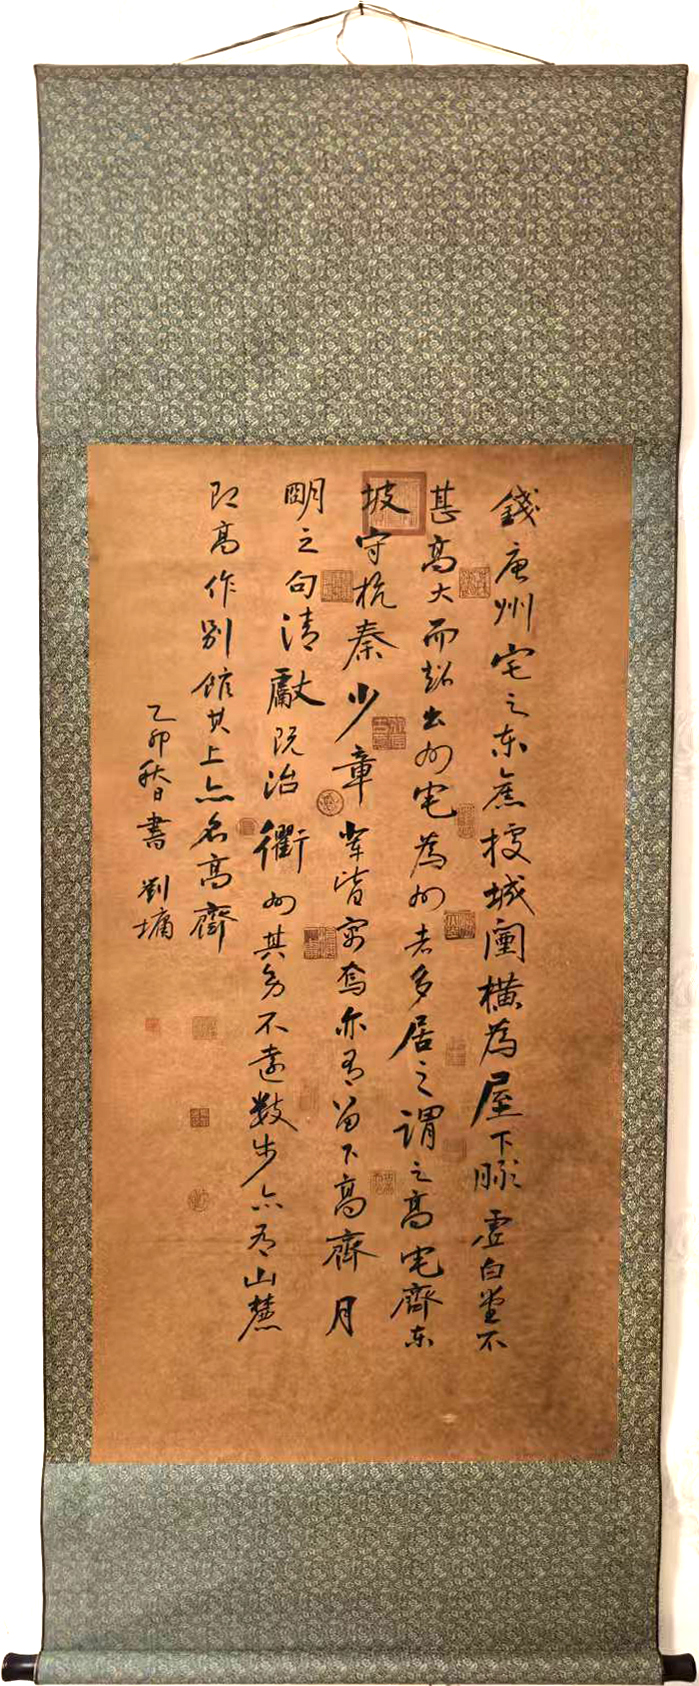 錢唐州宅之東舊據城闉橫為屋下瞰虛白堂不
甚高大而超出州宅為州者多居之謂之高宅齊東
坡守杭秦少章輩皆寓焉亦有留下高齊月
明之句清獻既治衢州其舍不遠數步亦有山麓
即高作別館其上亦名高齊
乙卯秋日書 劉墉